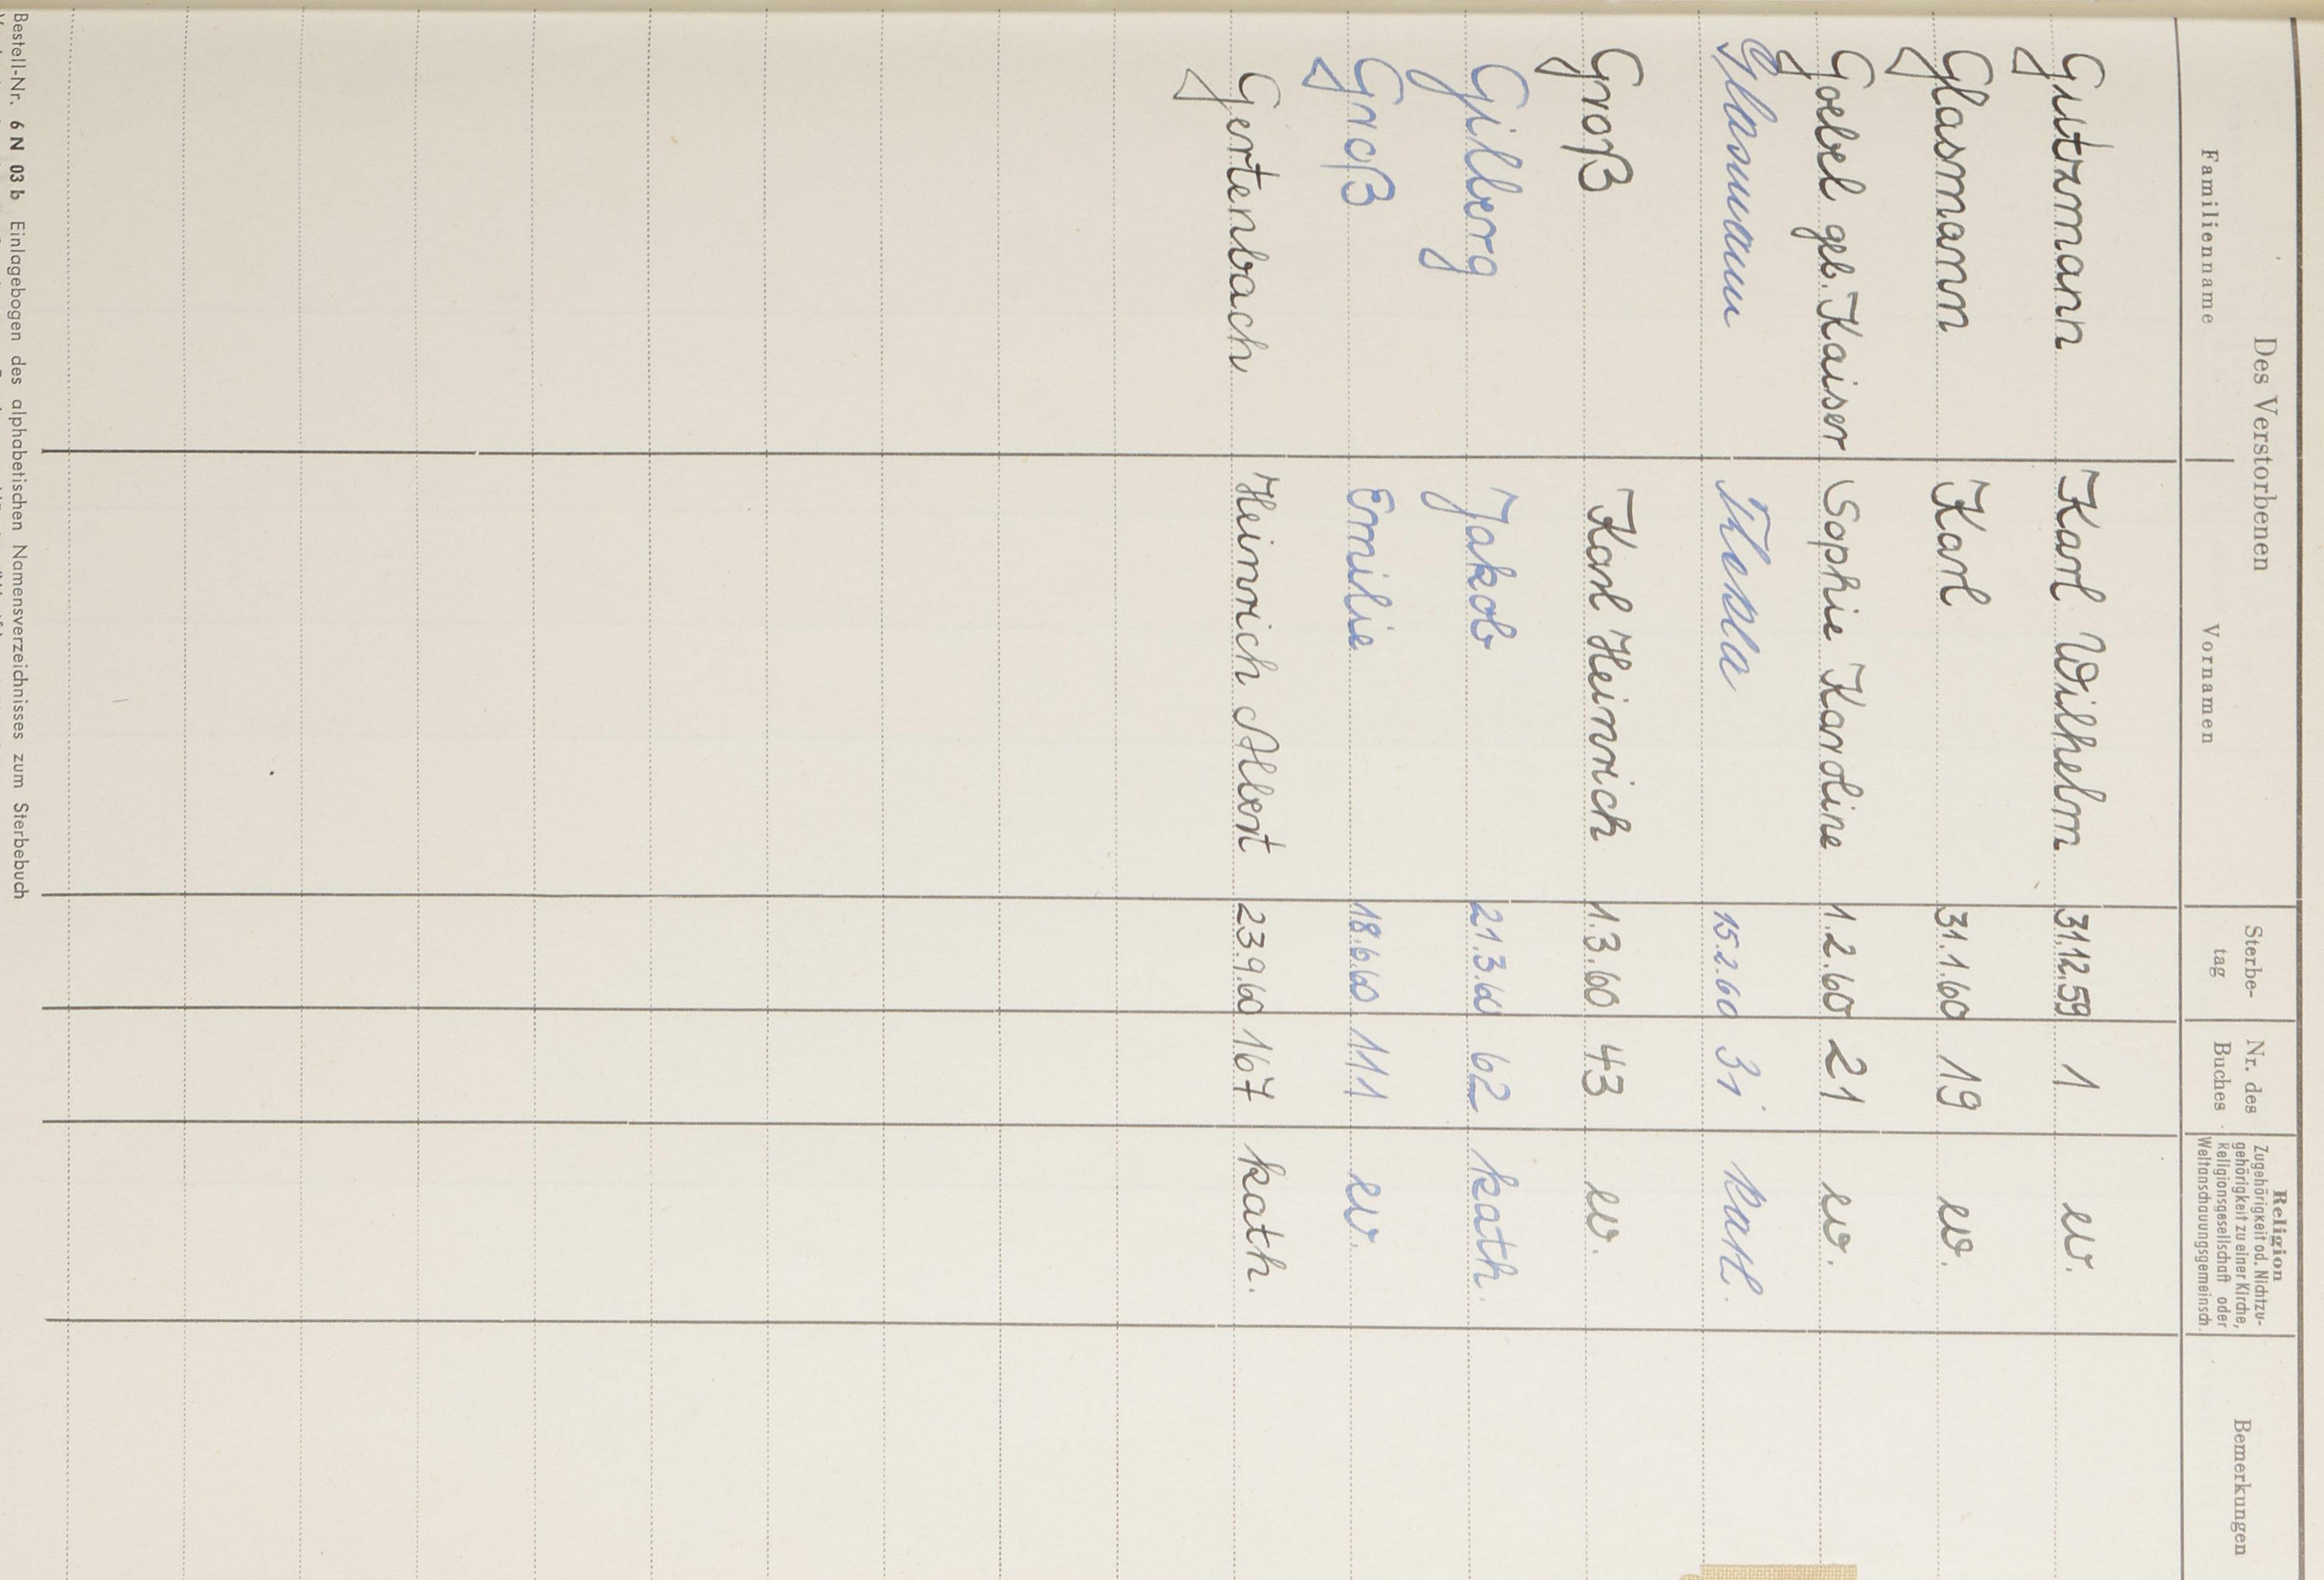 Des Verstorbenen
Familienname Vornamen Sterbe-tag Nr. des Buches Religion Zugehörigkeit od. Nichtzu-gehörigkeit zu einer Kirche, Religionsgesellschaft oder Weltanschauungsgemeinsch. Bemerkungen
Gutzmann Karl Wilhelm 31.12.59 1 ev.
Glasmann Karl 31.1.60 19 ev.
Goebel geb. Kaiser Sophie Karoline 1.2.60 21 ev.
Glasmann Thekla 15.2.60 31 kath.
Groß Karl Heinrich 1.3.60 43 ev.
Gilberg Jakob 21.3.60 62 kath.
Groß Emilie 18.6.60 111 ev.
Gertenbach Heinrich Albert 23.9.60 167 kath.
Bestell-Nr. 6 N 03 b Einlagebogen des alphabetischen Namensverzeichnisses zum Sterbebuch